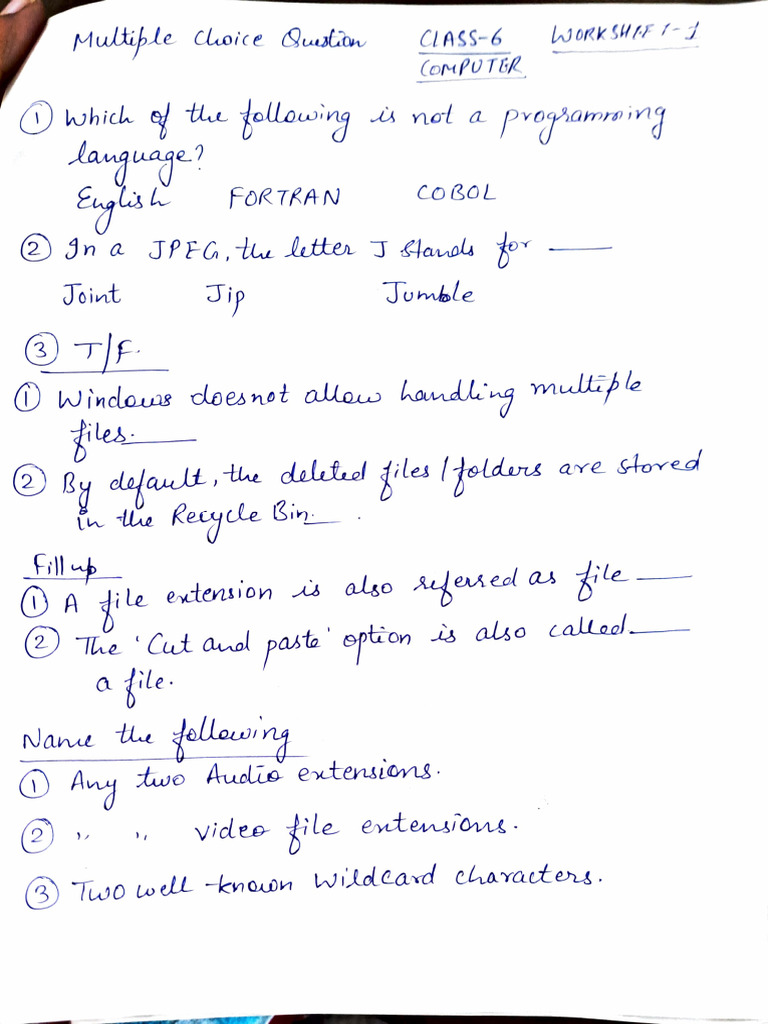 Multiple Choice Question CLASS-6 WORKSHEET-1
COMPUTER
① Which of the following is not a programming
language?
English FORTRAN COBOL
② In a JPEG, the letter J stands for ___
Joint Jip Jumble
③ T/F.
① Windows doesnot allow handling multiple
files. ___
② By default, the deleted files/folders are stored
in the Recycle Bin ___ .
Fill up
① A file extension is also referred as file ___
② The 'Cut and paste' option is also called ___
a file.
Name the following
① Any two Audio extensions.
② ,, ,, video file extensions.
③ Two well-known Wildcard characters.